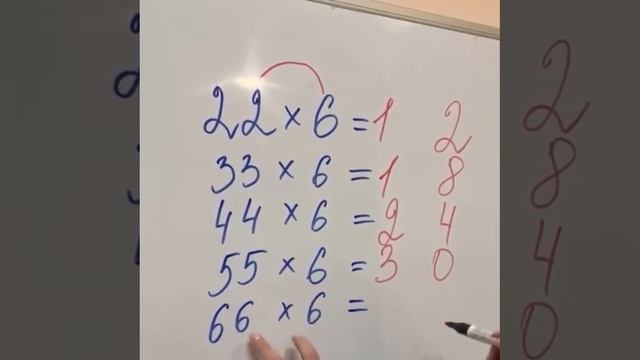 22 × 6 = 1 2
33 × 6 = 1 8
44 × 6 = 2 4
55 × 6 = 3 0
66 × 6 =